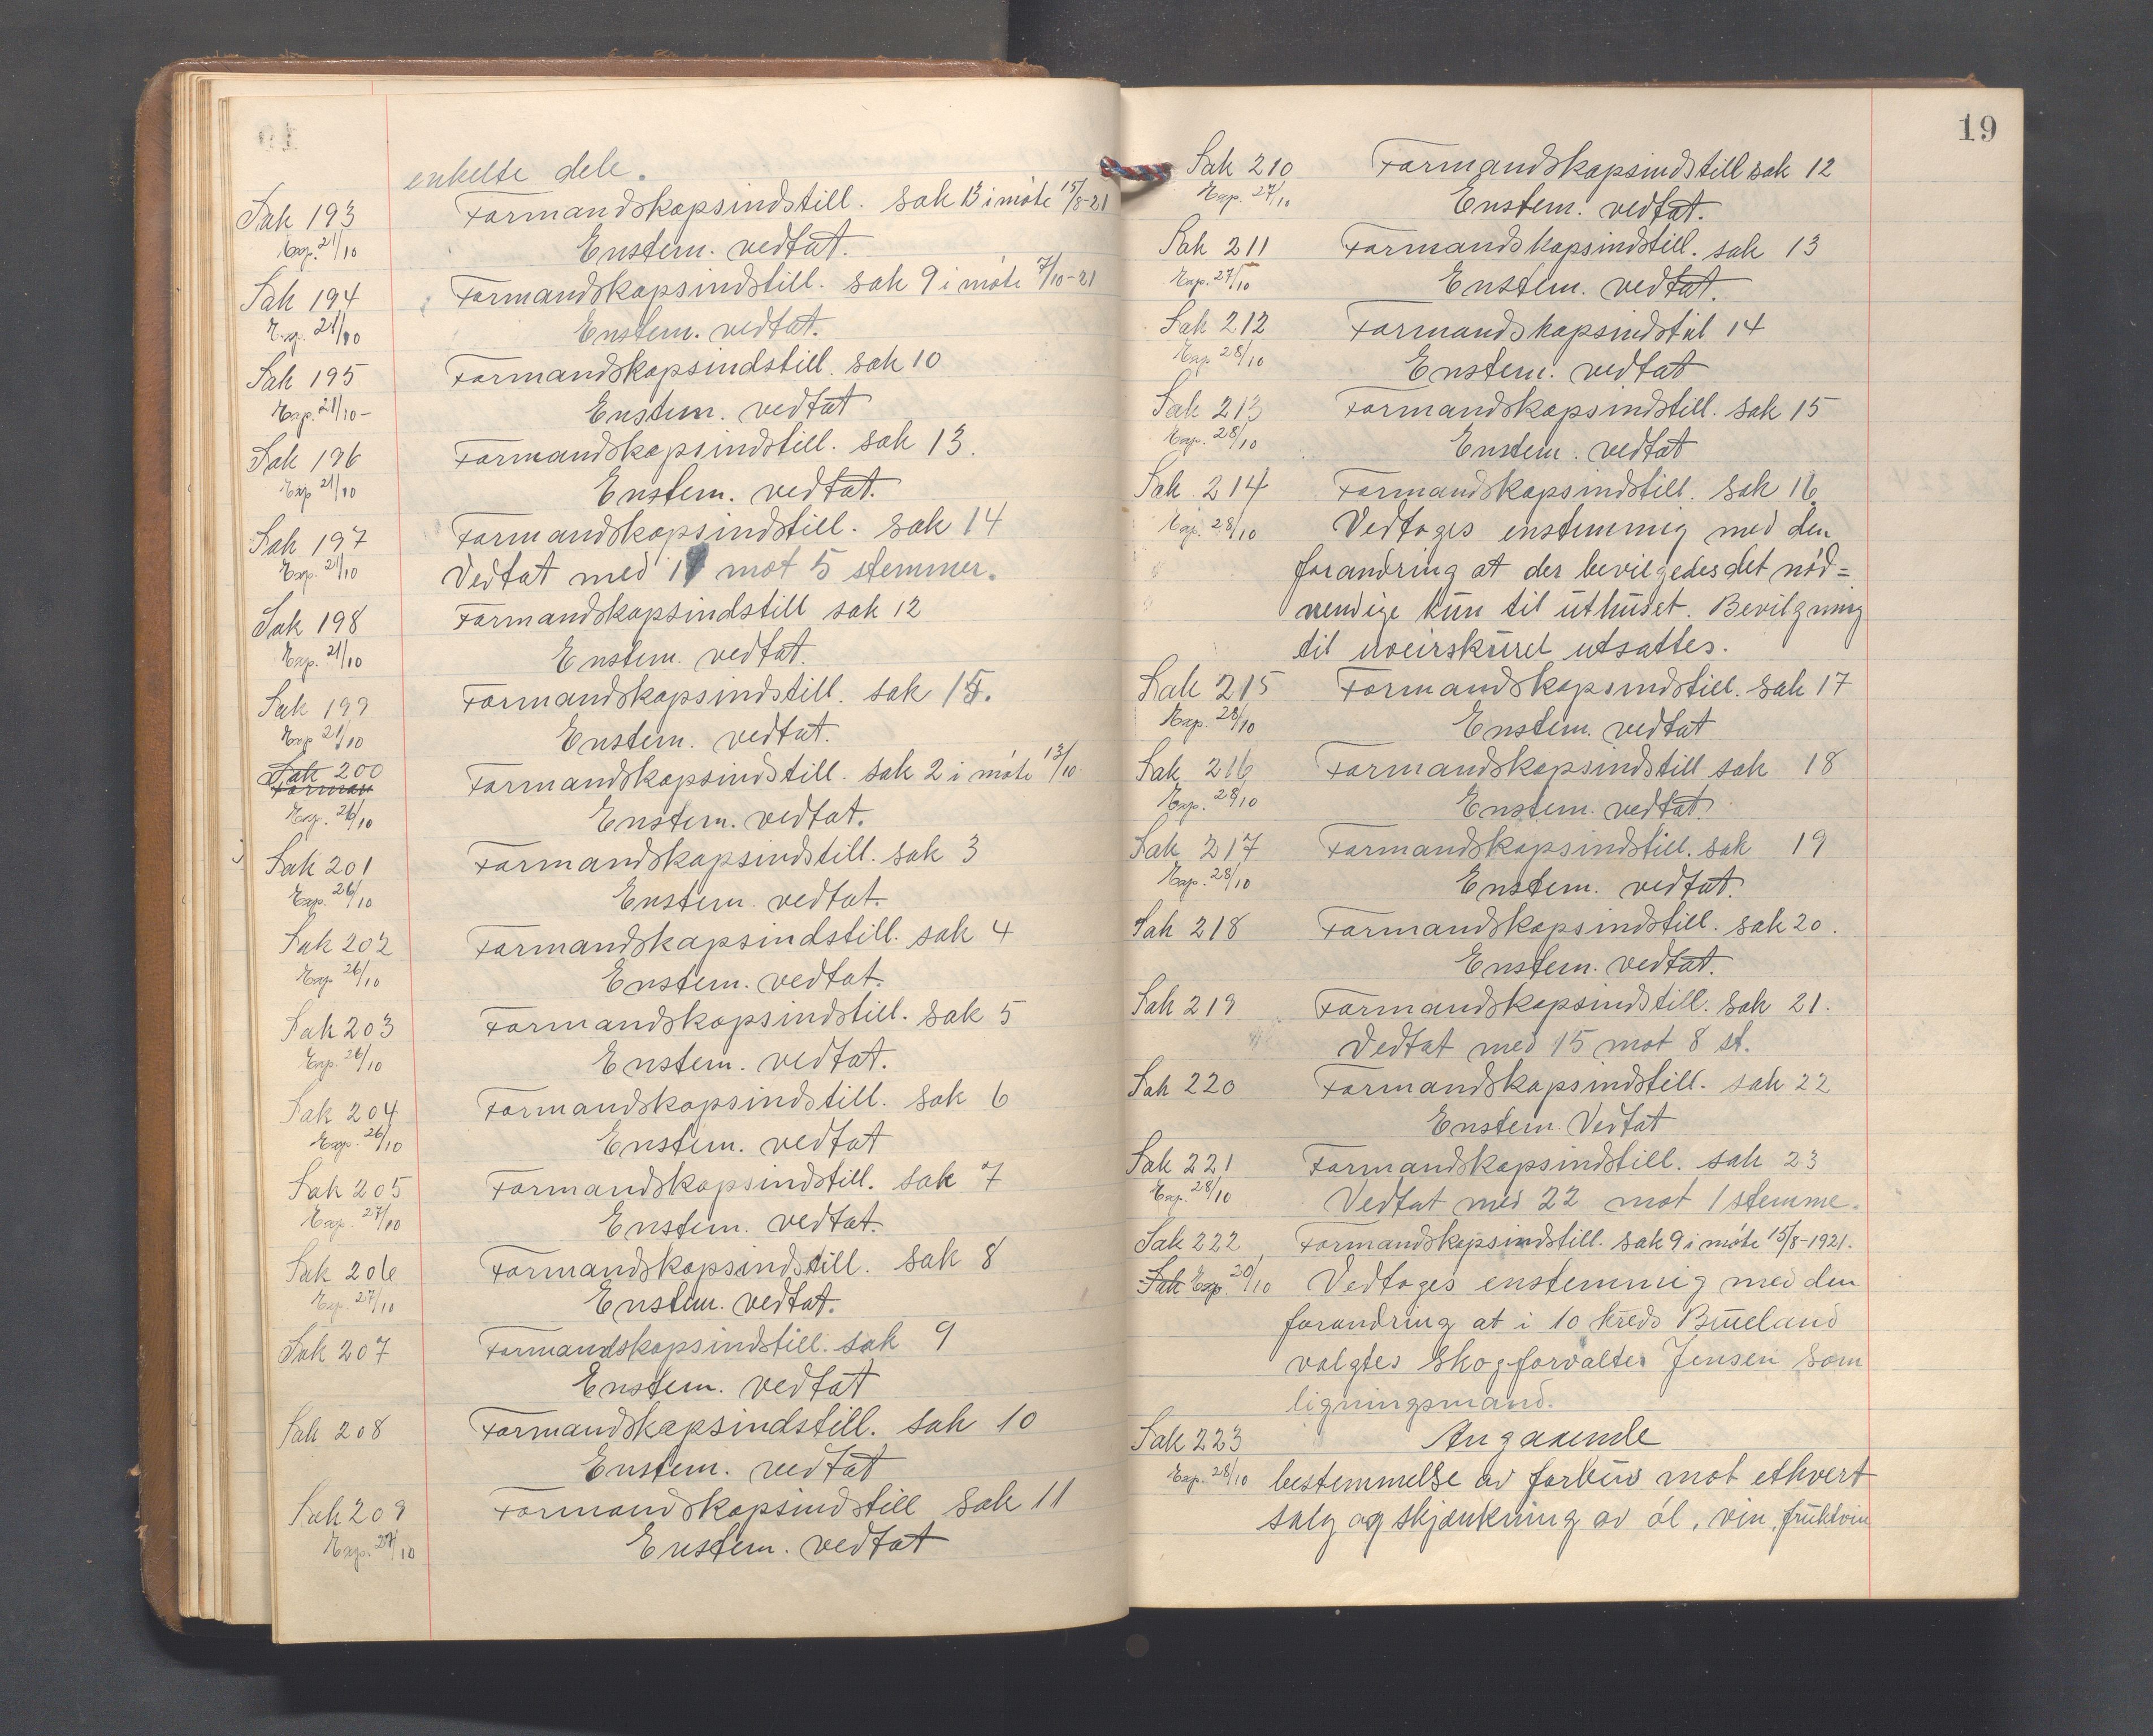 enkelte dele.
Sak 193 Formandskapsindstill. sak 13 i møte 15/8-21
Exp. 21/10 Enstem. vedtat.
Sak 194 Formandskapsindstill. sak 9 i møte 7/10-21
Exp. 21/10 Enstem. vedtat.
Sak 195 Formandskapsindstill. sak 10
Exp. 21/10- Enstem. vedtat
Sak 196 Formandskapsindstill. sak 13.
Exp 21/10 Enstem. vedtat.
Sak 197 Formandskapsindstill. sak 14
Exp. 21/10 Vedtat med mot 5 stemmer.
Sak 198 Formandskapsindstill sak 12
Exp. 21/10 Enstem. vedtat.
Sak 199 Formandskapsindstill. sak 15.
Exp 21/10 Enstem. vedtat.
Sak 200 Formandskapsindstill. sak 2 i møte 13/10.
Forman
Exp. 26/10 Enstem. vedtat.
Sak 201 Formandskapsindstill. sak 3
Exp. 26/10 Enstem. vedtat.
Sak 202 Formandskapsindstill. sak 4
Exp. 26/10 Enstem. vedtat.
Sak 203 Formandskapsindstill. sak 5
Exp. 26/10 Enstem. vedtat.
Sak 204 Formandskapsindstill. sak 6
Exp. 26/10 Enstem. vedtat
Sak 205 Formandskapsindstill. sak 7
Exp. 27/10 Enstem. vedtat.
Sak 206 Formandskapsindstill. sak 8
Exp. 27/10 Enstem. vedtat.
Sak 207 Formandskapsindstill. sak 9
Enstem. vedtat
Sak 208 Formandskapsindstill. sak 10
Enstem. vedtat
Sak 209 Formandskapsindstill sak 11
Exp. 27/10 Enstem. vedtat
19
Sak 210 Formandskapsindstill sak 12
Exp. 27/10 Enstem. vedtat.
Sak 211 Formandskapsindstill. sak 13
Exp. 27/10 Enstem. vedtat.
Sak 212 Formandskapsindstil 14
Exp 28/10 Enstem. vedtat
Sak 213 Formandskapsindstill. sak 15
Exp. 28/10 Enstem. vedtat
Sak 214 Formandskapsindstill. sak 16
Exp. 28/10 Vedtoges enstemmig med den
forandring at der bevilgedes det nød=
vendige kun til uthuset. Bevilgning
til uveirskuret utsattes.
Sak 215 Formandskapsindstill. sak 17
Exp. 28/10 Enstem. vedtat
Sak 216 Formandskapsindstill sak 18
Exp. 28/10 Enstem. vedtat.
Sak 217 Formandskapsindstill. sak 19
Exp. 28/10 Enstem. vedtat.
Sak 218 Formandskapsindstill. sak 20.
Enstem. vedtat.
Sak 219 Formandskapsindstill. sak 21.
Vedtat med 15 mot 8 st.
Sak 220 Formandskapsindstill. sak 22
Enstem. Vedtat
Sak 221 Formandskapsindstill. sak 23
Exp. 28/10 Vedtat med 22 mot 1 stemme.
Sak 222 Formandskapsindstill. sak 9 i møte 15/8-1921.
Sak Exp. /10 Vedtoges enstemmig med den
forandring at i 10 kreds Bueland
valgtes Skogforvalter Jensen som
ligningsmand.
Sak 223 Angaaende
Exp. 28/10 bestemmelse av forbud mot ethvert
salg og skjænkning av øl, vin, fruktvin